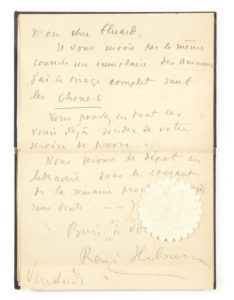 Mon cher Eluard,
Je vous envoie par le même
courrier un exemplaire des Animaux
j'ai le tirage complet sauf
les Chines
Vous pouvez en tout cas
déjà de votre
service de
Nous ferons le dépôt en
librairie dans le courant
de la semaine
sans doute ----
Bien à vo
René Hilsum
Vendredi